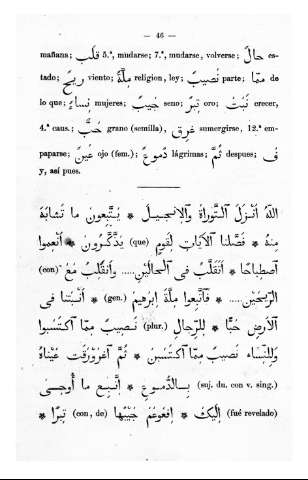 — 46 —
mañana; قلب 5.ª, mudarse; 7.ª, mudarse, volverse; حال es-
tado; ريح viento; ملة religion, ley; نصيب parte; مما de
lo que; نساء mujeres; جيب seno; تبر oro; نبت crecer,
4.ª caus.; حب grano (semilla), غرق sumergirse, 12.ª em-
paparse; عين ojo (fem.); دموع lágrimas; ثم despues; ف
y, así pues.
الله أنزل التوراة والإنجيل * يتبعون ما تشابه
منه * فصلنا الآيات لقوم (que) يذكرون * أنعموا
اصطباحا * أنقلب فى الحالين.... وانقلب مع (con)
الريحين.... * فاتبعوا ملة إبرهيم (gen.) * أنبتنا فى
الأرض حبا * للرجال (plur.) نصيب مما اكتسبوا
وللنساء نصيب مما اكتسبن * ثم اغرورقت عيناه
بالدموع * اتبع ما أوحى (suj. du. con v. sing.)
إليك (fué revelado) * جيبها (con, de) تبرا *